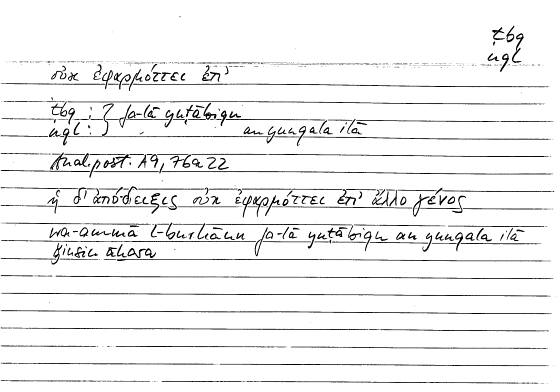 ṭbq
nql
οὐκ ἐφαρμόττει ἐπί
ṭbq : } fa-lā yuṭābiqu
nql : } an yunqala ilā
Anal. post. A9, 76a22
ἡ δ' ἀπόδειξις οὐκ ἐφαρμόττει ἐπ' ἄλλο γένος
wa-ammā l-burhānu fa-lā yuṭābiqu an yunqala ilā
ǧinsin āḫara